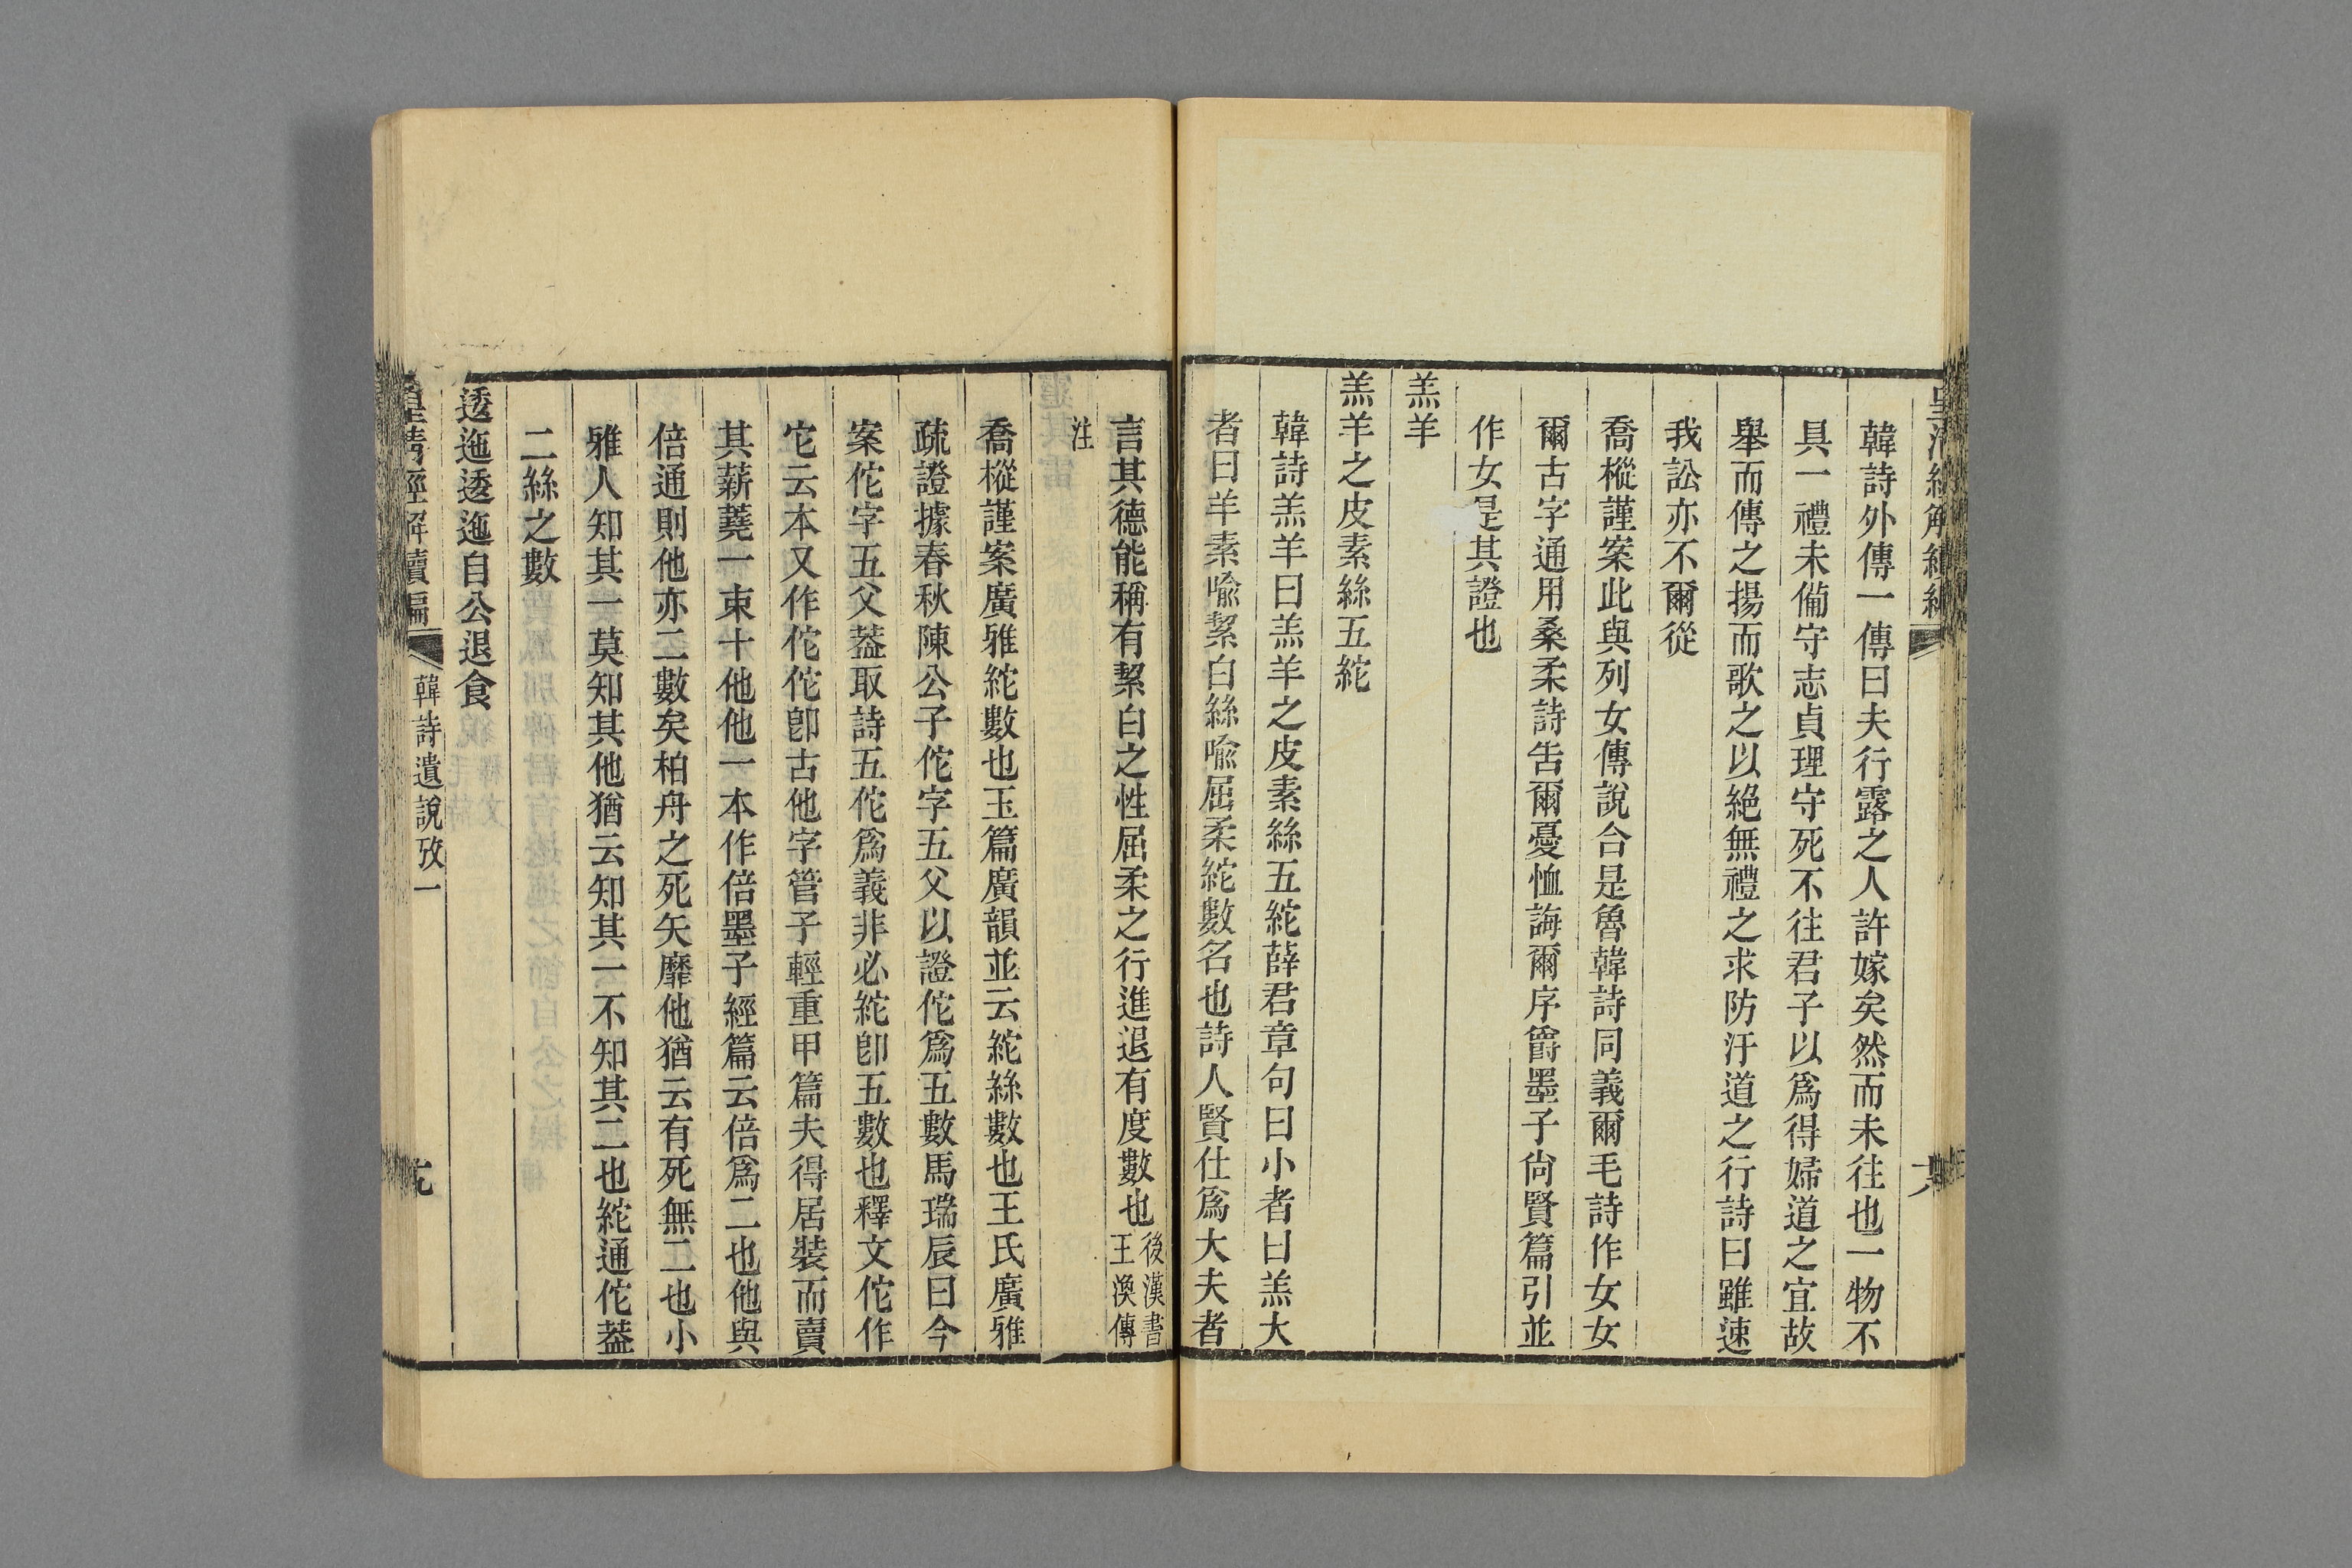 韓詩外傳一傳曰夫行露之人許嫁矣然而未往也一物不
具一禮未備守志貞理守死不往君子以爲得婦道之宜故
舉而傳之揚而歌之以絶無禮之求防汙道之行詩曰雖速
我訟亦不爾從
喬樅謹案此與列女傳說合是魯韓詩同義爾毛詩作女女
爾古字通用桑柔詩吿爾憂恤誨爾序爵墨子尙賢篇引並
作女是其證也
羔羊
羔羊之皮素絲五紽
韓詩羔羊曰羔羊之皮素絲五紽薛君章句曰小者曰羔大
者曰羊素喻絜白絲喻屈柔紽數名也詩人賢仕爲大夫者
言其德能稱有絜白之性屈柔之行進退有度數也後漢書王渙傳
注
喬樅謹案廣雅紽數也玉篇廣韻並云紽絲數也王氏廣雅
疏證據春秋陳公子佗字五父以證佗爲五數馬瑞辰曰今
案佗字五父葢取詩五佗爲義非必紽卽五數也釋文佗作
它云本又作佗佗卽古他字管子輕重甲篇夫得居裝而賣
其薪蕘一束十他他一本作倍墨子經篇云倍爲二也他與
倍通則他亦二數矣柏舟之死矢靡他猶云有死無二也小
雅人知其一莫知其他猶云知其一不知其二也紽通佗葢
二絲之數
逶迤逶迤自公退食
皇淸經解續編 韓詩遺說攷一